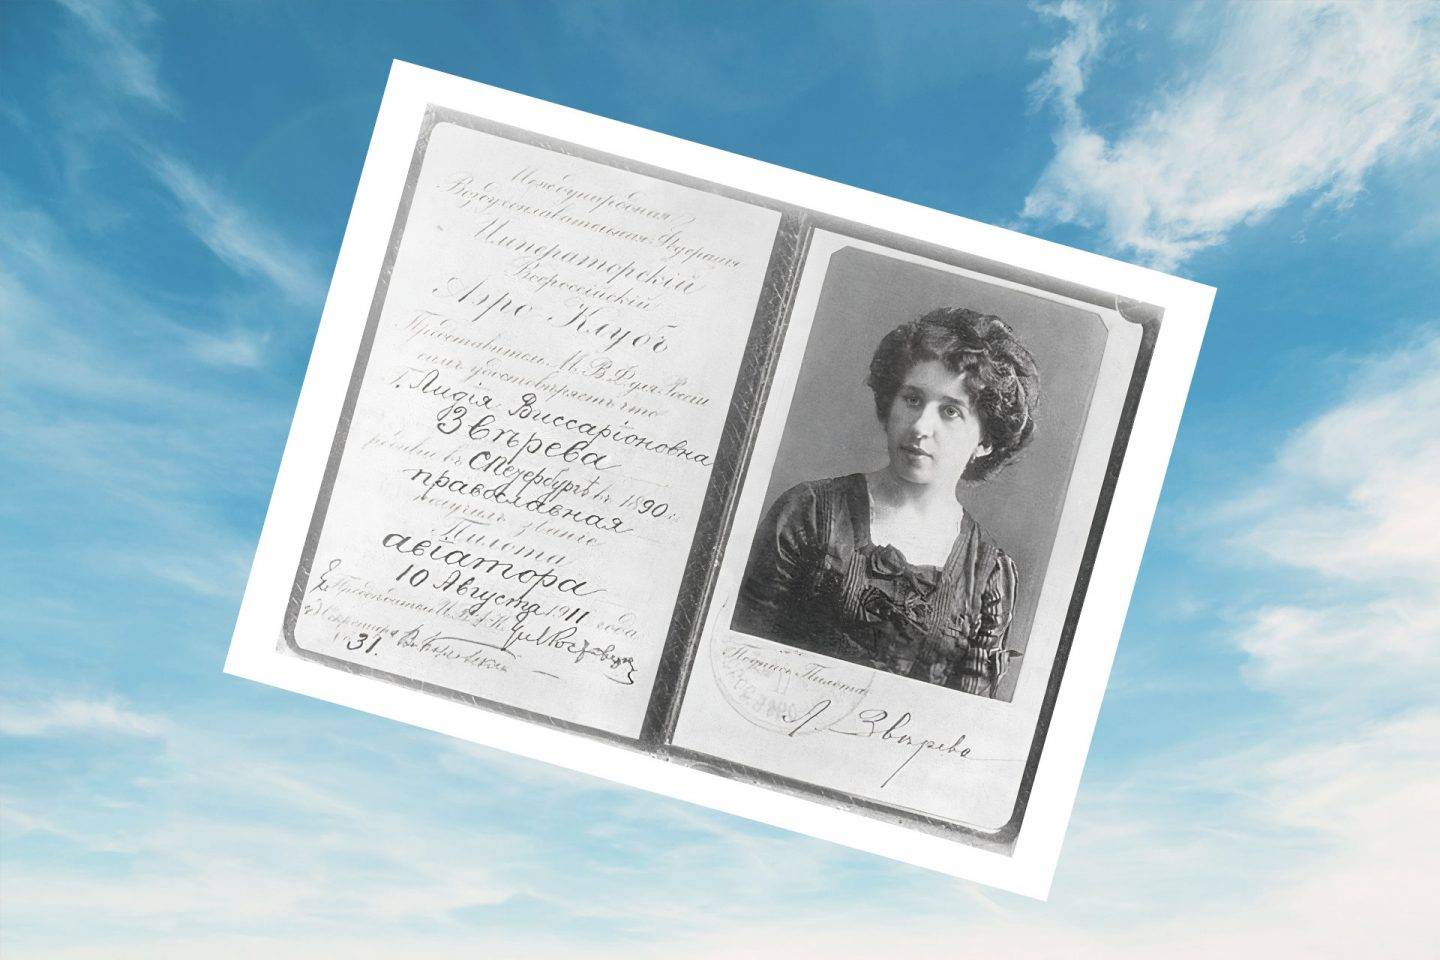 Международная
Воздухоплавательная Федерация
Императорскій
Всероссійскій
Аэро Клубъ
Представитель М. В. Ф. для Россіи
симъ удостовѣряетъ что
Г. Лидія Виссаріоновна
Звѣрева
въ СПетербургѣ въ 1890 г.
православная
получилъ званіе
Пилота
авіатора
10 Августа 1911 года
Секретарь
№ 31.
Подпись Пилота
Л. Звѣрева